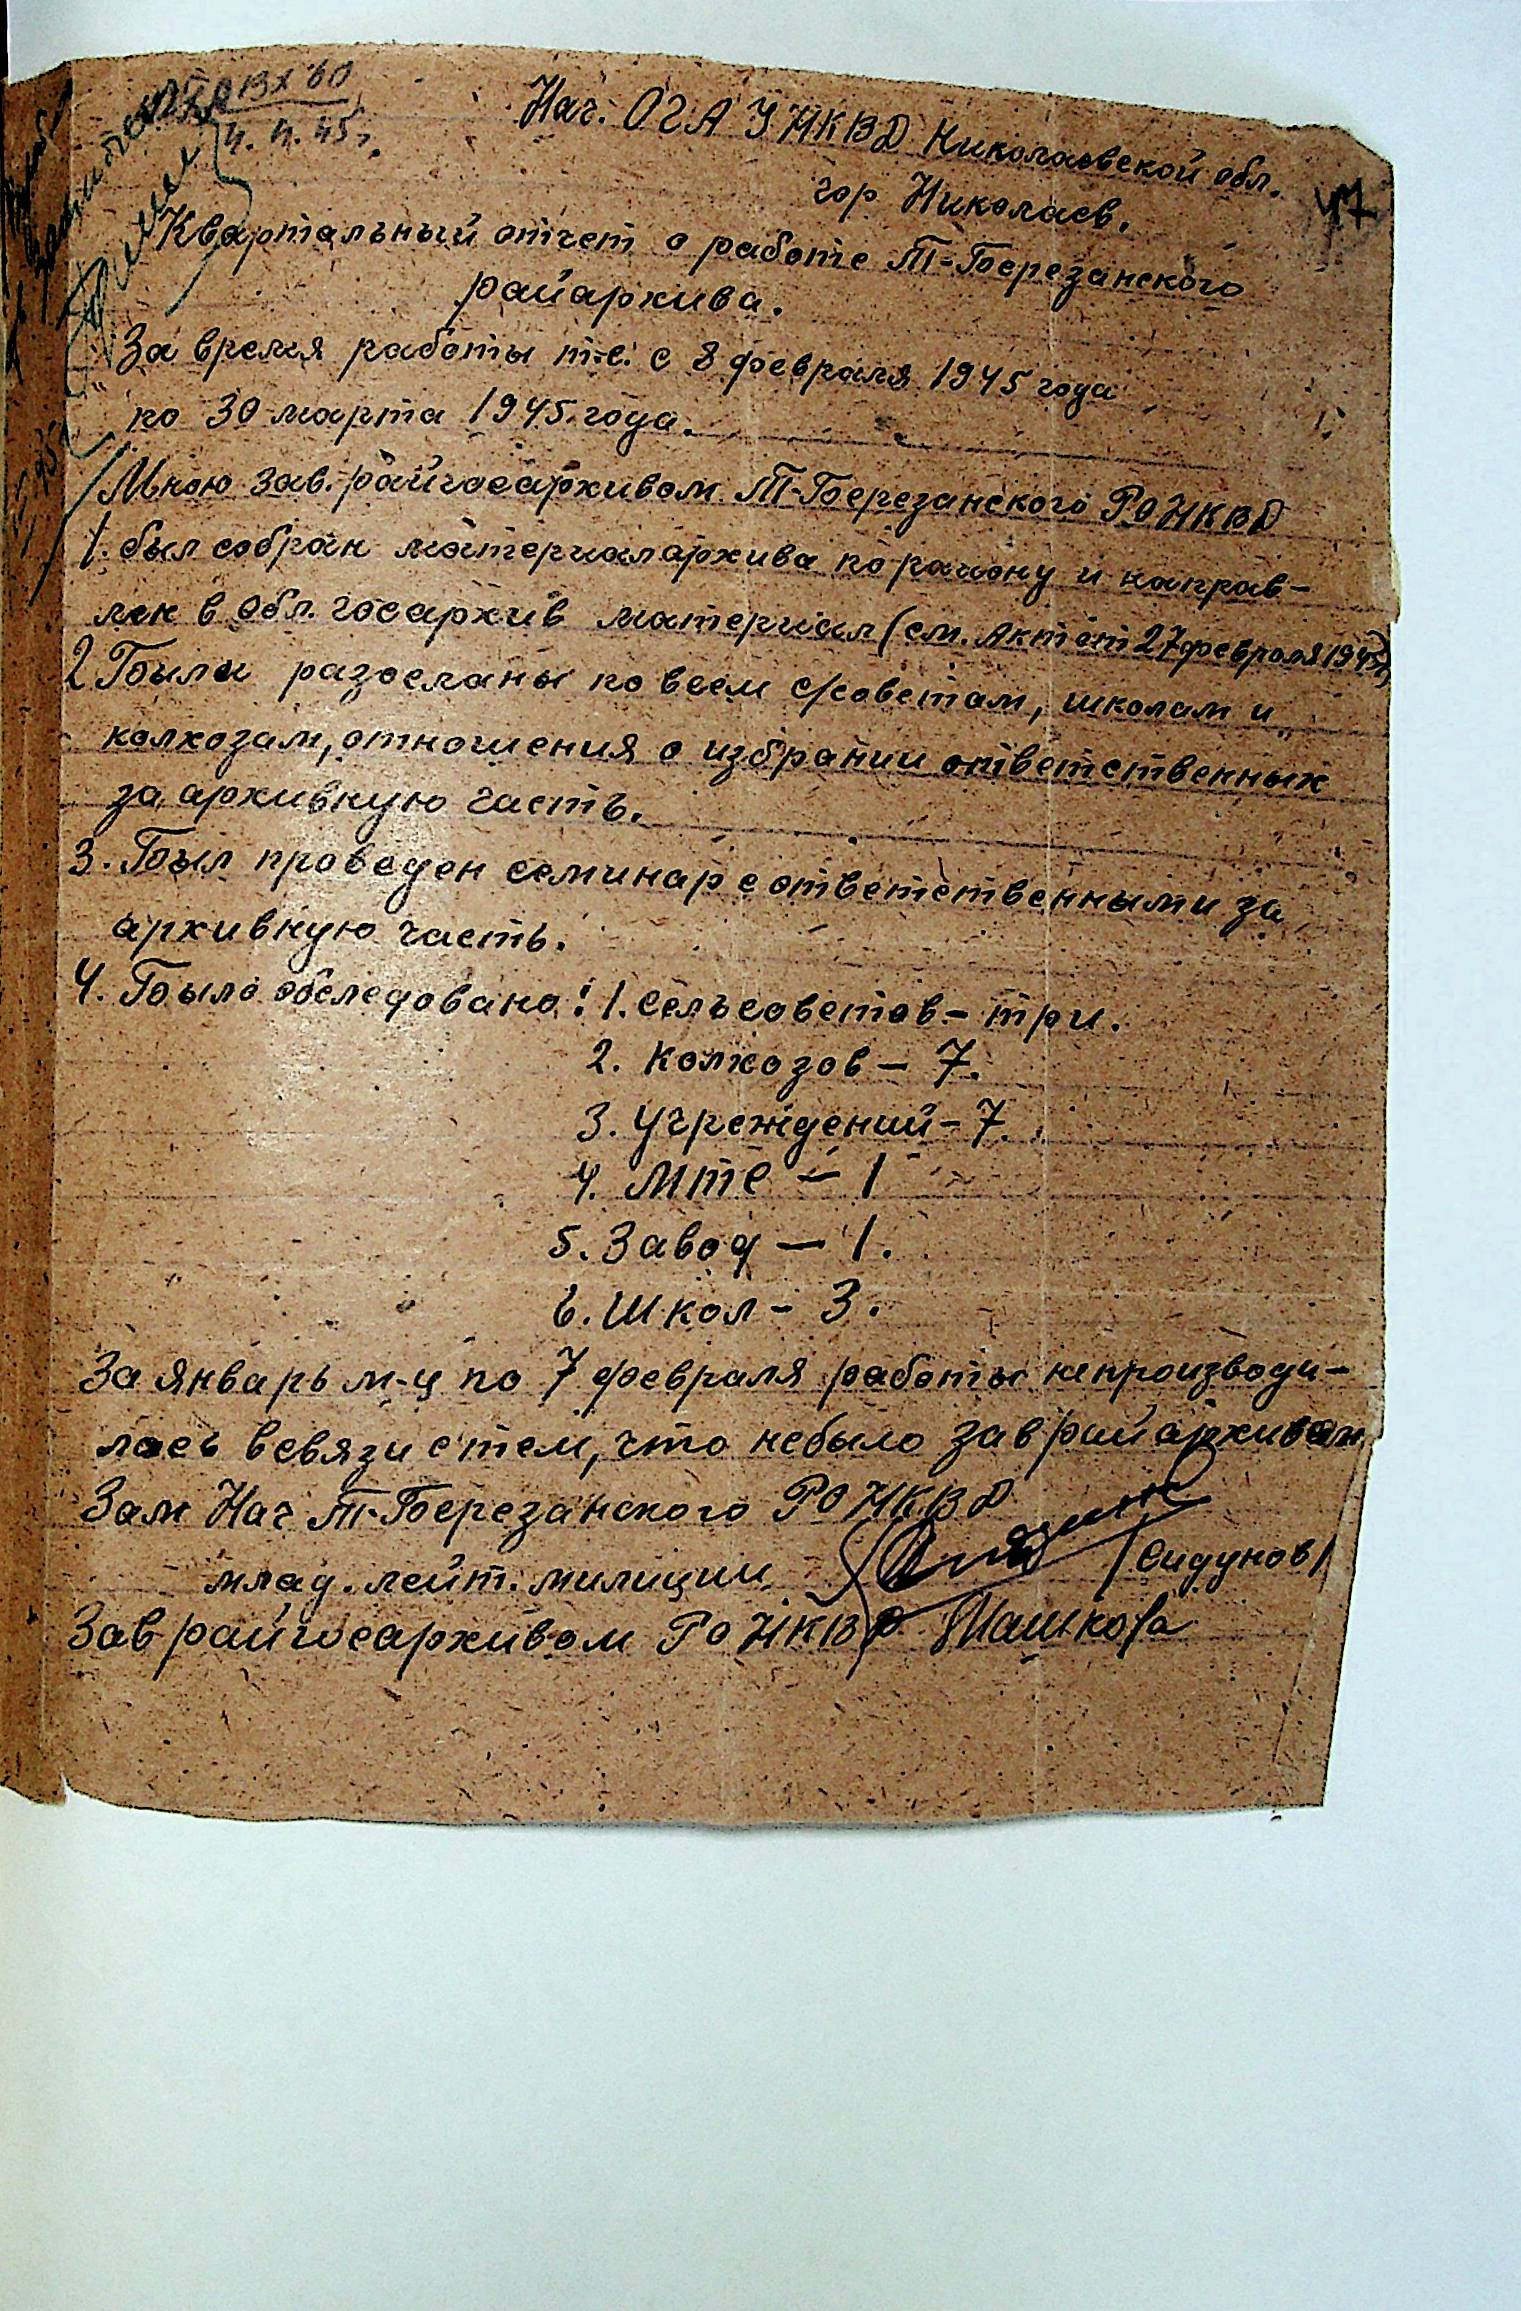 Вх 60
4. 4. 45 г.
47
Нач. ОГА УНКВД Николаевской обл.
гор Николаев.
Квартальный отчет о работе Т-Березанского
райархива.
За время работы т.е. с 8 февраля 1945 года
по 30 марта 1945 года.
Мною зав. райгосархивом Т-Березанского РОНКВД
1. был собран материал архива по району и направ-
лен в Обл. госархив материал (см. Акт от 27 февраля 1945г)
2 Были разосланы по всем с/советам, школам и
колхозам, отношения о избрании ответственных
за архивную часть.
3. Был проведен семинар с ответственными за
архивную часть.
4. Было обследовано: 1. Сельсоветов – три.
2. Колхозов – 7.
3. Учреждений – 7.
4. МТС – 1
5. Завод – 1.
6. Школ – 3.
За январь м-ц по 7 февраля работы непроизводи-
лась всвязи с тем, что небыло зав райархивом
Зам Нач Т-Березанского РОНКВД
млад. лейт. милиции (Сидунов)
Зав райгосархивом РОНКВД Машкова